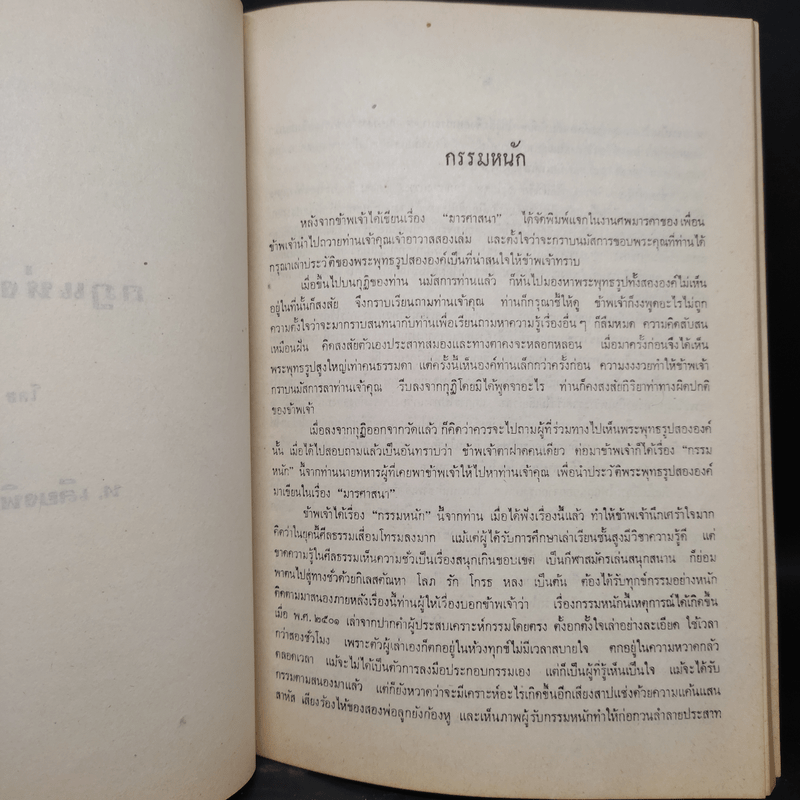 กรรมหนัก
หลังจากข้าพเจ้าได้เขียนเรื่อง "มารศาสนา" ได้จัดพิมพ์แจกในงานศพมารดาของเพื่อน
ข้าพเจ้านำไปถวายท่านเจ้าคุณเจ้าอาวาสสองเล่ม และตั้งใจว่าจะกราบนมัสการขอบพระคุณที่ท่านได้
กรุณาเล่าประวัติของพระพุทธรูปสององค์เป็นที่น่าสนใจให้ข้าพเจ้าทราบ
เมื่อขึ้นไปบนกุฏิของท่าน นมัสการท่านแล้ว ก็หันไปมองหาพระพุทธรูปทั้งสององค์ไม่เห็น
อยู่ในที่นั้นก็สงสัย จึงกราบเรียนถามท่านเจ้าคุณ ท่านก็กรุณาชี้ให้ดู ข้าพเจ้าก็งงพูดอะไรไม่ถูก
ความตั้งใจว่าจะมากราบสนทนากับท่านเพื่อเรียนถามหาความรู้เรื่องอื่นๆ ก็ลืมหมด ความคิดสับสน
เหมือนฝัน คิดสงสัยตัวเองประสาทสมองและทางตาคงจะหลอกหลอน เมื่อมาครั้งก่อนจึงได้เห็น
พระพุทธรูปสูงใหญ่เท่าคนธรรมดา แต่ครั้งนี้เห็นองค์ท่านเล็กกว่าครั้งก่อน ความงงงวยทำให้ข้าพเจ้า
กราบนมัสการลาท่านเจ้าคุณ รีบลงจากกุฏิโดยมิได้พูดจาอะไร ท่านก็คงสงสัยกิริยาท่าทางผิดปกติ
ของข้าพเจ้า
เมื่อลงจากกุฏิออกจากวัดแล้ว ก็คิดว่าควรจะไปถามผู้ที่ร่วมทางไปเห็นพระพุทธรูปสององค์
นั้น เมื่อได้ไปสอบถามแล้วเป็นอันทราบว่า ข้าพเจ้าตาฝาดคนเดียว ต่อมาข้าพเจ้าก็ได้เรื่อง "กรรม
หนัก" นี้จากท่านนายทหารผู้ที่เคยพาข้าพเจ้าให้ไปหาท่านเจ้าคุณ เพื่อนำประวัติพระพุทธรูปสององค์
มาเขียนในเรื่อง "มารศาสนา"
ข้าพเจ้าได้เรื่อง "กรรมหนัก" นี้จากท่าน เมื่อได้ฟังเรื่องนี้แล้ว ทำให้ข้าพเจ้านึกเศร้าใจมาก
คิดว่าในยุคนี้ศีลธรรมเสื่อมโทรมลงมาก แม้แต่ผู้ได้รับการศึกษาเล่าเรียนชั้นสูงมีวิชาความรู้ดี แต่
ขาดความรู้ในศีลธรรมเห็นความชั่วเป็นเรื่องสนุกเกินขอบเขต เป็นกีฬาสมัครเล่นสนุกสนาน ก็ย่อม
พาตนไปสู่ทางชั่วด้วยกิเลสตัณหา โลภ รัก โกรธ หลง เป็นต้น ต้องได้รับทุกข์กรรมอย่างหนัก
ติดตามมาสนองภายหลังเรื่องนี้ท่านผู้ให้เรื่องบอกข้าพเจ้าว่า เรื่องกรรมหนักนี้เหตุการณ์ได้เกิดขึ้น
เมื่อ พ.ศ. ๒๕๐๑ เล่าจากปากคำผู้ประสบเคราะห์กรรมโดยตรง ตั้งอกตั้งใจเล่าอย่างละเอียด ใช้เวลา
กว่าสองชั่วโมง เพราะตัวผู้เล่าเองก็ตกอยู่ในห้วงทุกข์ไม่มีเวลาสบายใจ ตกอยู่ในความหวาดกลัว
ตลอดเวลา แม้จะไม่ได้เป็นตัวการลงมือประกอบกรรมเอง แต่ก็เป็นผู้ที่รู้เห็นเป็นใจ แม้จะได้รับ
กรรมตามสนองมาแล้ว แต่ก็ยังหวาดว่าจะมีเคราะห์อะไรเกิดขึ้นอีกเสียงสาปแช่งด้วยความแค้นแสน
สาหัส เสียงร้องไห้ของสองพ่อลูกยังก้องหู และเห็นภาพผู้รับกรรมหนักทำให้ก่อกวนทำลายประสาท